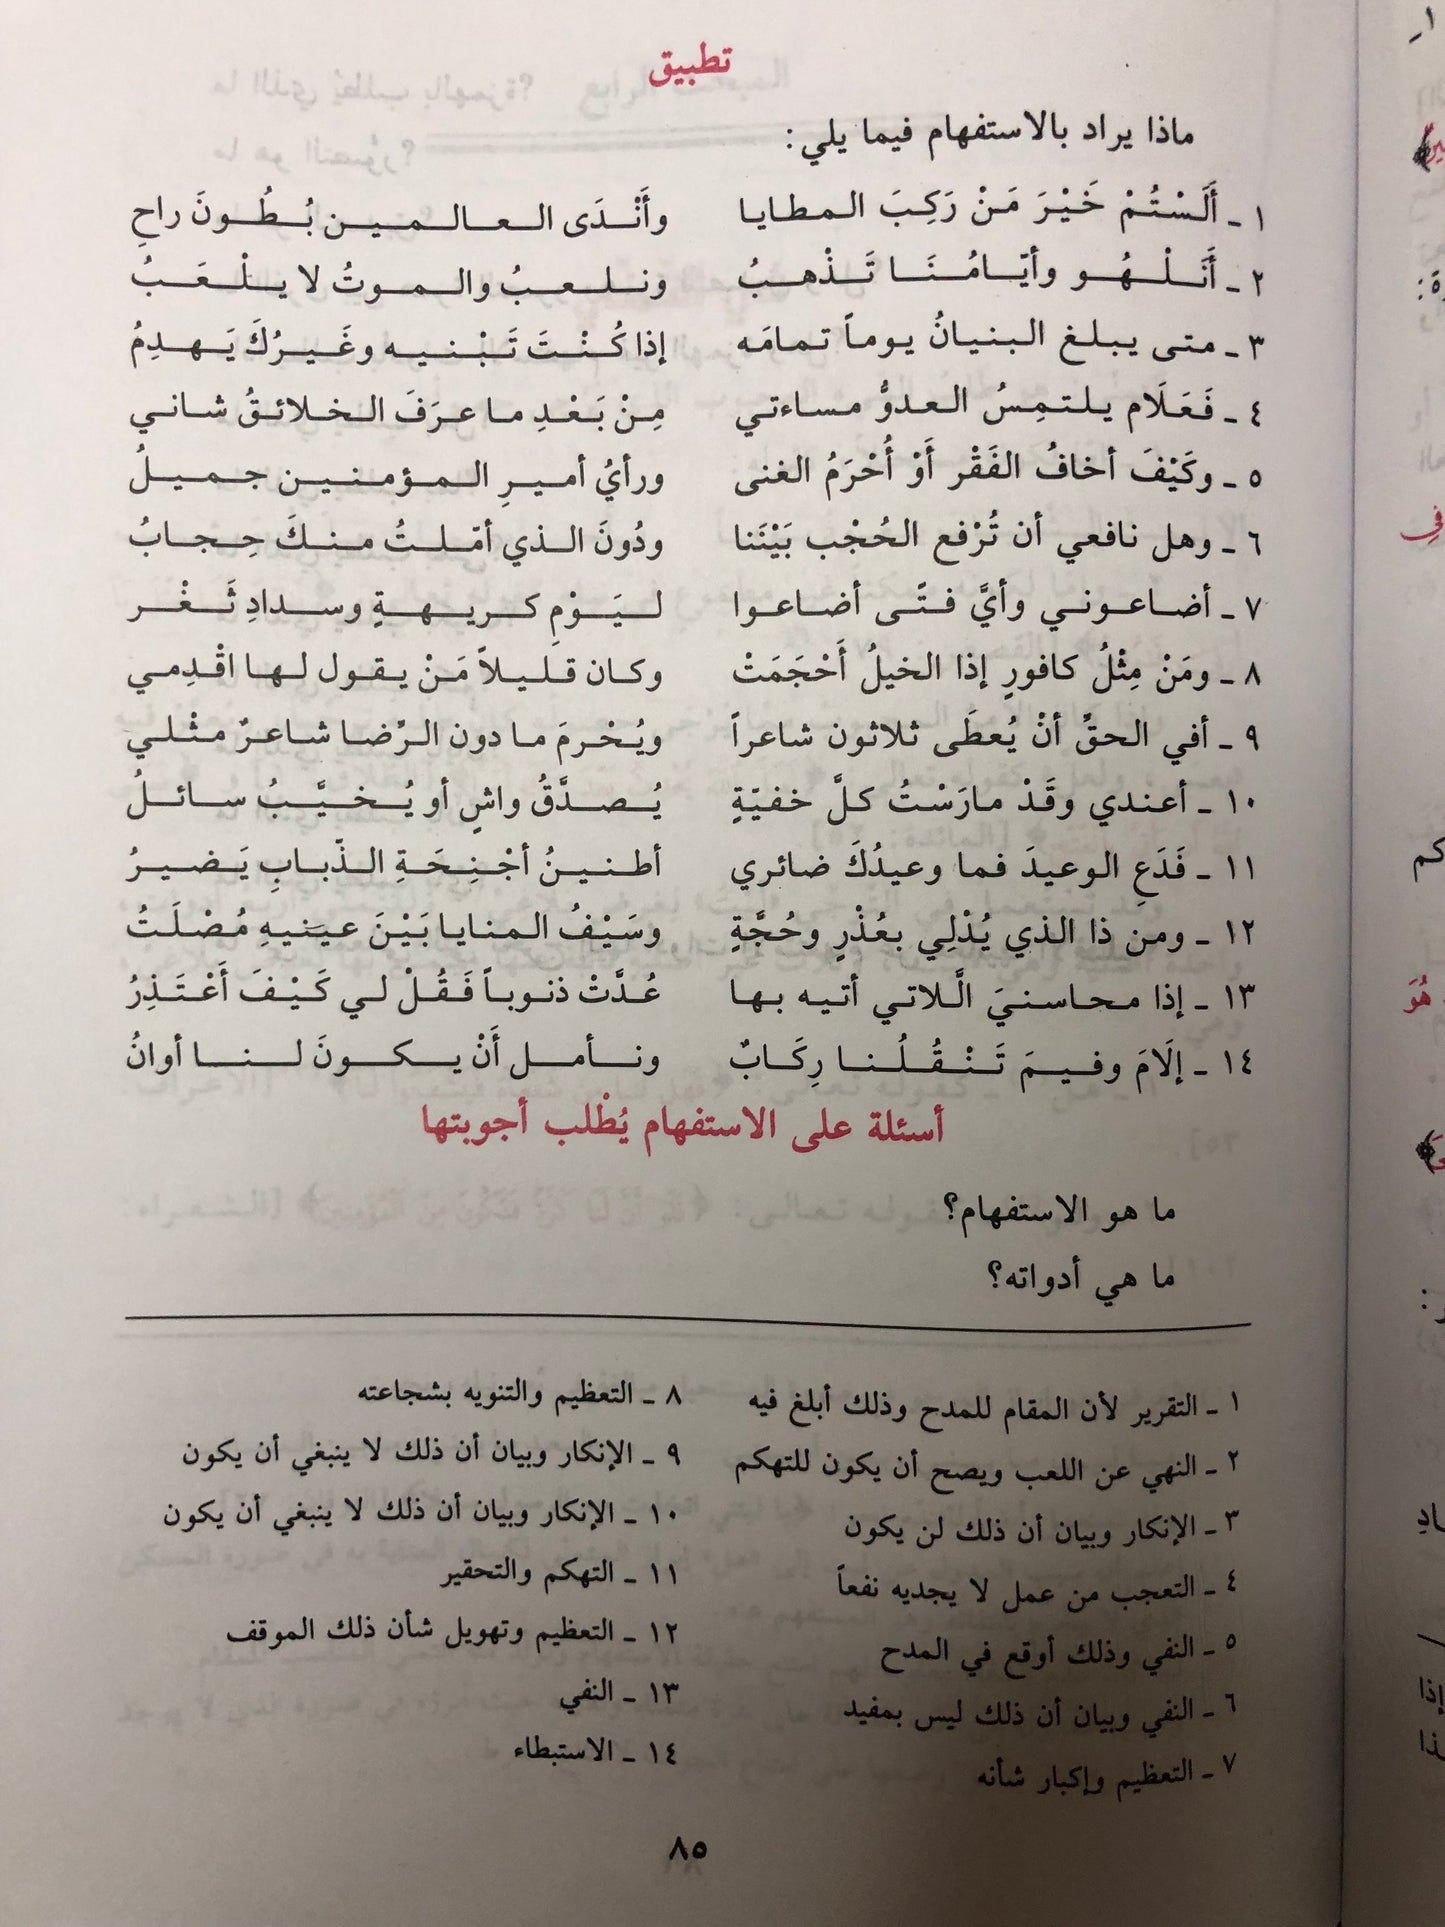 تطبيق
ماذا يراد بالاستفهام فيما يلي:
١ ـ أَلَسْتُمْ خَيْرَ مَنْ رَكِبَ المطايا وأَنْدَى العالمين بُطُونَ راحِ
٢ ـ أَنَلْهُو وأيّامُنَا تَذْهبُ ونلعبُ والموتُ لا يلْعَبُ
٣ ـ متى يبلغ البنيانُ يوماً تمامَه إذا كُنْتَ تَبْنيه وغَيرُكَ يَهدِمُ
٤ ـ فَعَلَام يلتمِسُ العدوُّ مساءتي مِنْ بَعْدِ ما عرَفَ الخلائقُ شاني
٥ ـ وكَيْفَ أخافُ الفَقْر أَوْ أُحْرَمُ الغنى ورأيُ أميرِ المؤمنين جميلُ
٦ ـ وهل نافعي أن تُرْفع الحُجْب بَيْنَنا ودُونَ الذي أمّلتُ منكَ حِجابُ
٧ ـ أضاعوني وأيَّ فتًى أضاعوا ليَوْمِ كريهةٍ وسدادِ ثَغْر
٨ ـ ومَنْ مِثْلُ كافورٍ إذا الخيلُ أَحْجَمَتْ وكان قليلاً مَنْ يقول لها اقْدِمي
٩ ـ أفي الحقِّ أنْ يُعطَى ثلاثون شاعراً ويُحْرمَ ما دون الرِّضا شاعرٌ مثْلي
١٠ ـ أعندي وقَدْ مارَسْتُ كلَّ خفيّةٍ يُصدَّقُ واشٍ أو يُخيَّبُ سائلُ
١١ ـ فَدَعِ الوعيدَ فما وعيدُكَ ضائري أطنينُ أجْنِحَةِ الذّبابِ يَضيرُ
١٢ ـ ومن ذا الذي يُدْلِي بعُذْرٍ وحُجَّةٍ وسَيْفُ المنايا بَيْنَ عينيهِ مُصْلَتُ
١٣ ـ إذا محاسنيَ الَّلاتي أتيه بها عُدَّتْ ذنوباً فَقُلْ لي كَيْفَ أَعْتَذِرُ
١٤ ـ إلَامَ وفيمَ تَنْقُلُنا رِكَابٌ ونأمل أَنْ يكونَ لنا أوانُ
أسئلة على الاستفهام يُطْلب أجوبتها
ما هو الاستفهام؟
ما هي أدواته؟
١ ـ التقرير لأن المقام للمدح وذلك أبلغ فيه
٢ ـ النهي عن اللعب ويصح أن يكون للتهكم
٣ ـ الإنكار وبيان أن ذلك لن يكون
٤ ـ التعجب من عمل لا يجديه نفعاً
٥ ـ النفي وذلك أوقع في المدح
٦ ـ النفي وبيان أن ذلك ليس بمفيد
٧ ـ التعظيم وإكبار شأنه
٨ ـ التعظيم والتنويه بشجاعته
٩ ـ الإنكار وبيان أن ذلك لا ينبغي أن يكون
١٠ ـ الإنكار وبيان أن ذلك لا ينبغي أن يكون
١١ ـ التهكم والتحقير
١٢ ـ التعظيم وتهويل شأن ذلك الموقف
١٣ ـ النفي
١٤ ـ الاستبطاء
٨٥